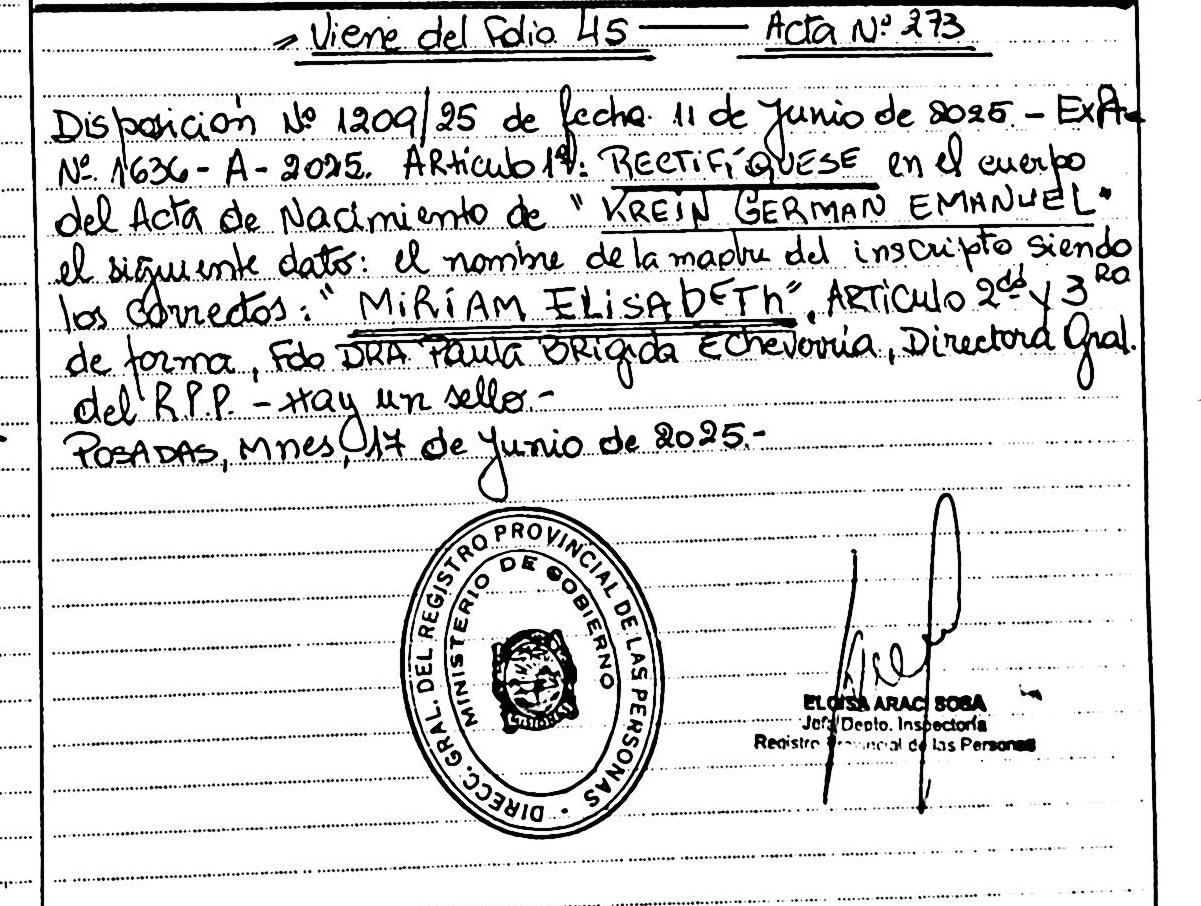 Viene del Folio 45 — Acta Nº 273
Disposición Nº 1209/25 de fecha 11 de Junio de 2025 - Expte
Nº 1636 - A - 2025. ARticulo 1º: RECTIFÍQUESE en el cuerpo
del Acta de Nacimiento de "KREIN GERMAN EMANUEL"
el siguiente dato: el nombre de la madre del inscripto siendo
los correctos: "MiRiAM ELiSAbETh". ARTiCulo 2do y 3Ro
de forma, Fdo DRA Paula BRigida Echeverría, Directora Gral.
del R.P.P. - Hay un sello.-
POSADAS, Mnes, 17 de Junio de 2025.-
DIRECC. GRAL. DEL REGISTRO PROVINCIAL DE LAS PERSONAS -
MINISTERIO DE GOBIERNO
MISIONES
ELOISA ARACI SOSA
Jefa Depto. Inspectoría
Registro Provincial de las Personas